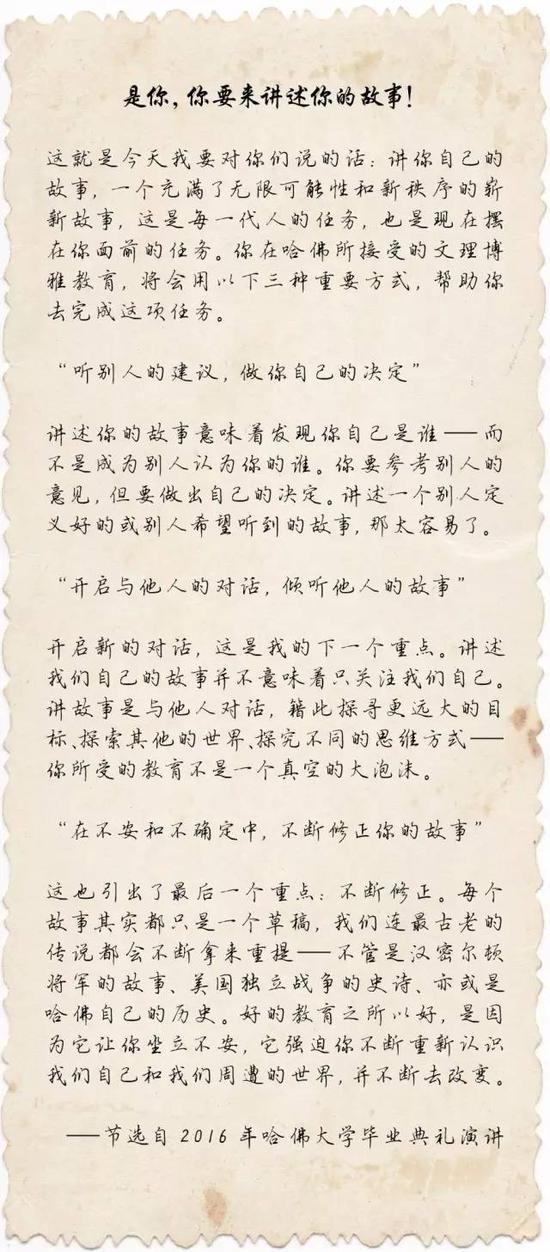 是你,你要来讲述你的故事!
这就是今天我要对你们说的话:讲你自己的
故事,一个充满了无限可能性和新秩序的崭
新故事,这是每一代人的任务,也是现在摆
在你面前的任务。你在哈佛所接受的文理博
雅教育,将会用以下三种重要方式,帮助你
去完成这项任务。
“听别人的建议,做你自己的决定”
讲述你的故事意味着发现你自己是谁——而
不是成为别人认为你的谁。你要参考别人的
意见,但要做出自己的决定。讲述一个别人定
义好的或别人希望听到的故事,那太容易了。
“开启与他人的对话,倾听他人的故事”
开启新的对话,这是我的下一个重点。讲述
我们自己的故事并不意味着只关注我们自己。
讲故事是与他人对话,籍此探寻更远大的目
标、探索其他的世界、探究不同的思维方式——
你所受的教育不是一个真空的大泡沫。
“在不安和不确定中,不断修正你的故事”
这也引出了最后一个重点:不断修正。每个
故事其实都只是一个草稿,我们连最古老的
传说都会不断拿来重提——不管是汉密尔顿
将军的故事、美国独立战争的史诗、亦或是
哈佛自己的历史。好的教育之所以好,是因
为它让你坐立不安,它强迫你不断重新认识
我们自己和我们周遭的世界,并不断去改变。
——节选自 2016 年哈佛大学毕业典礼演讲